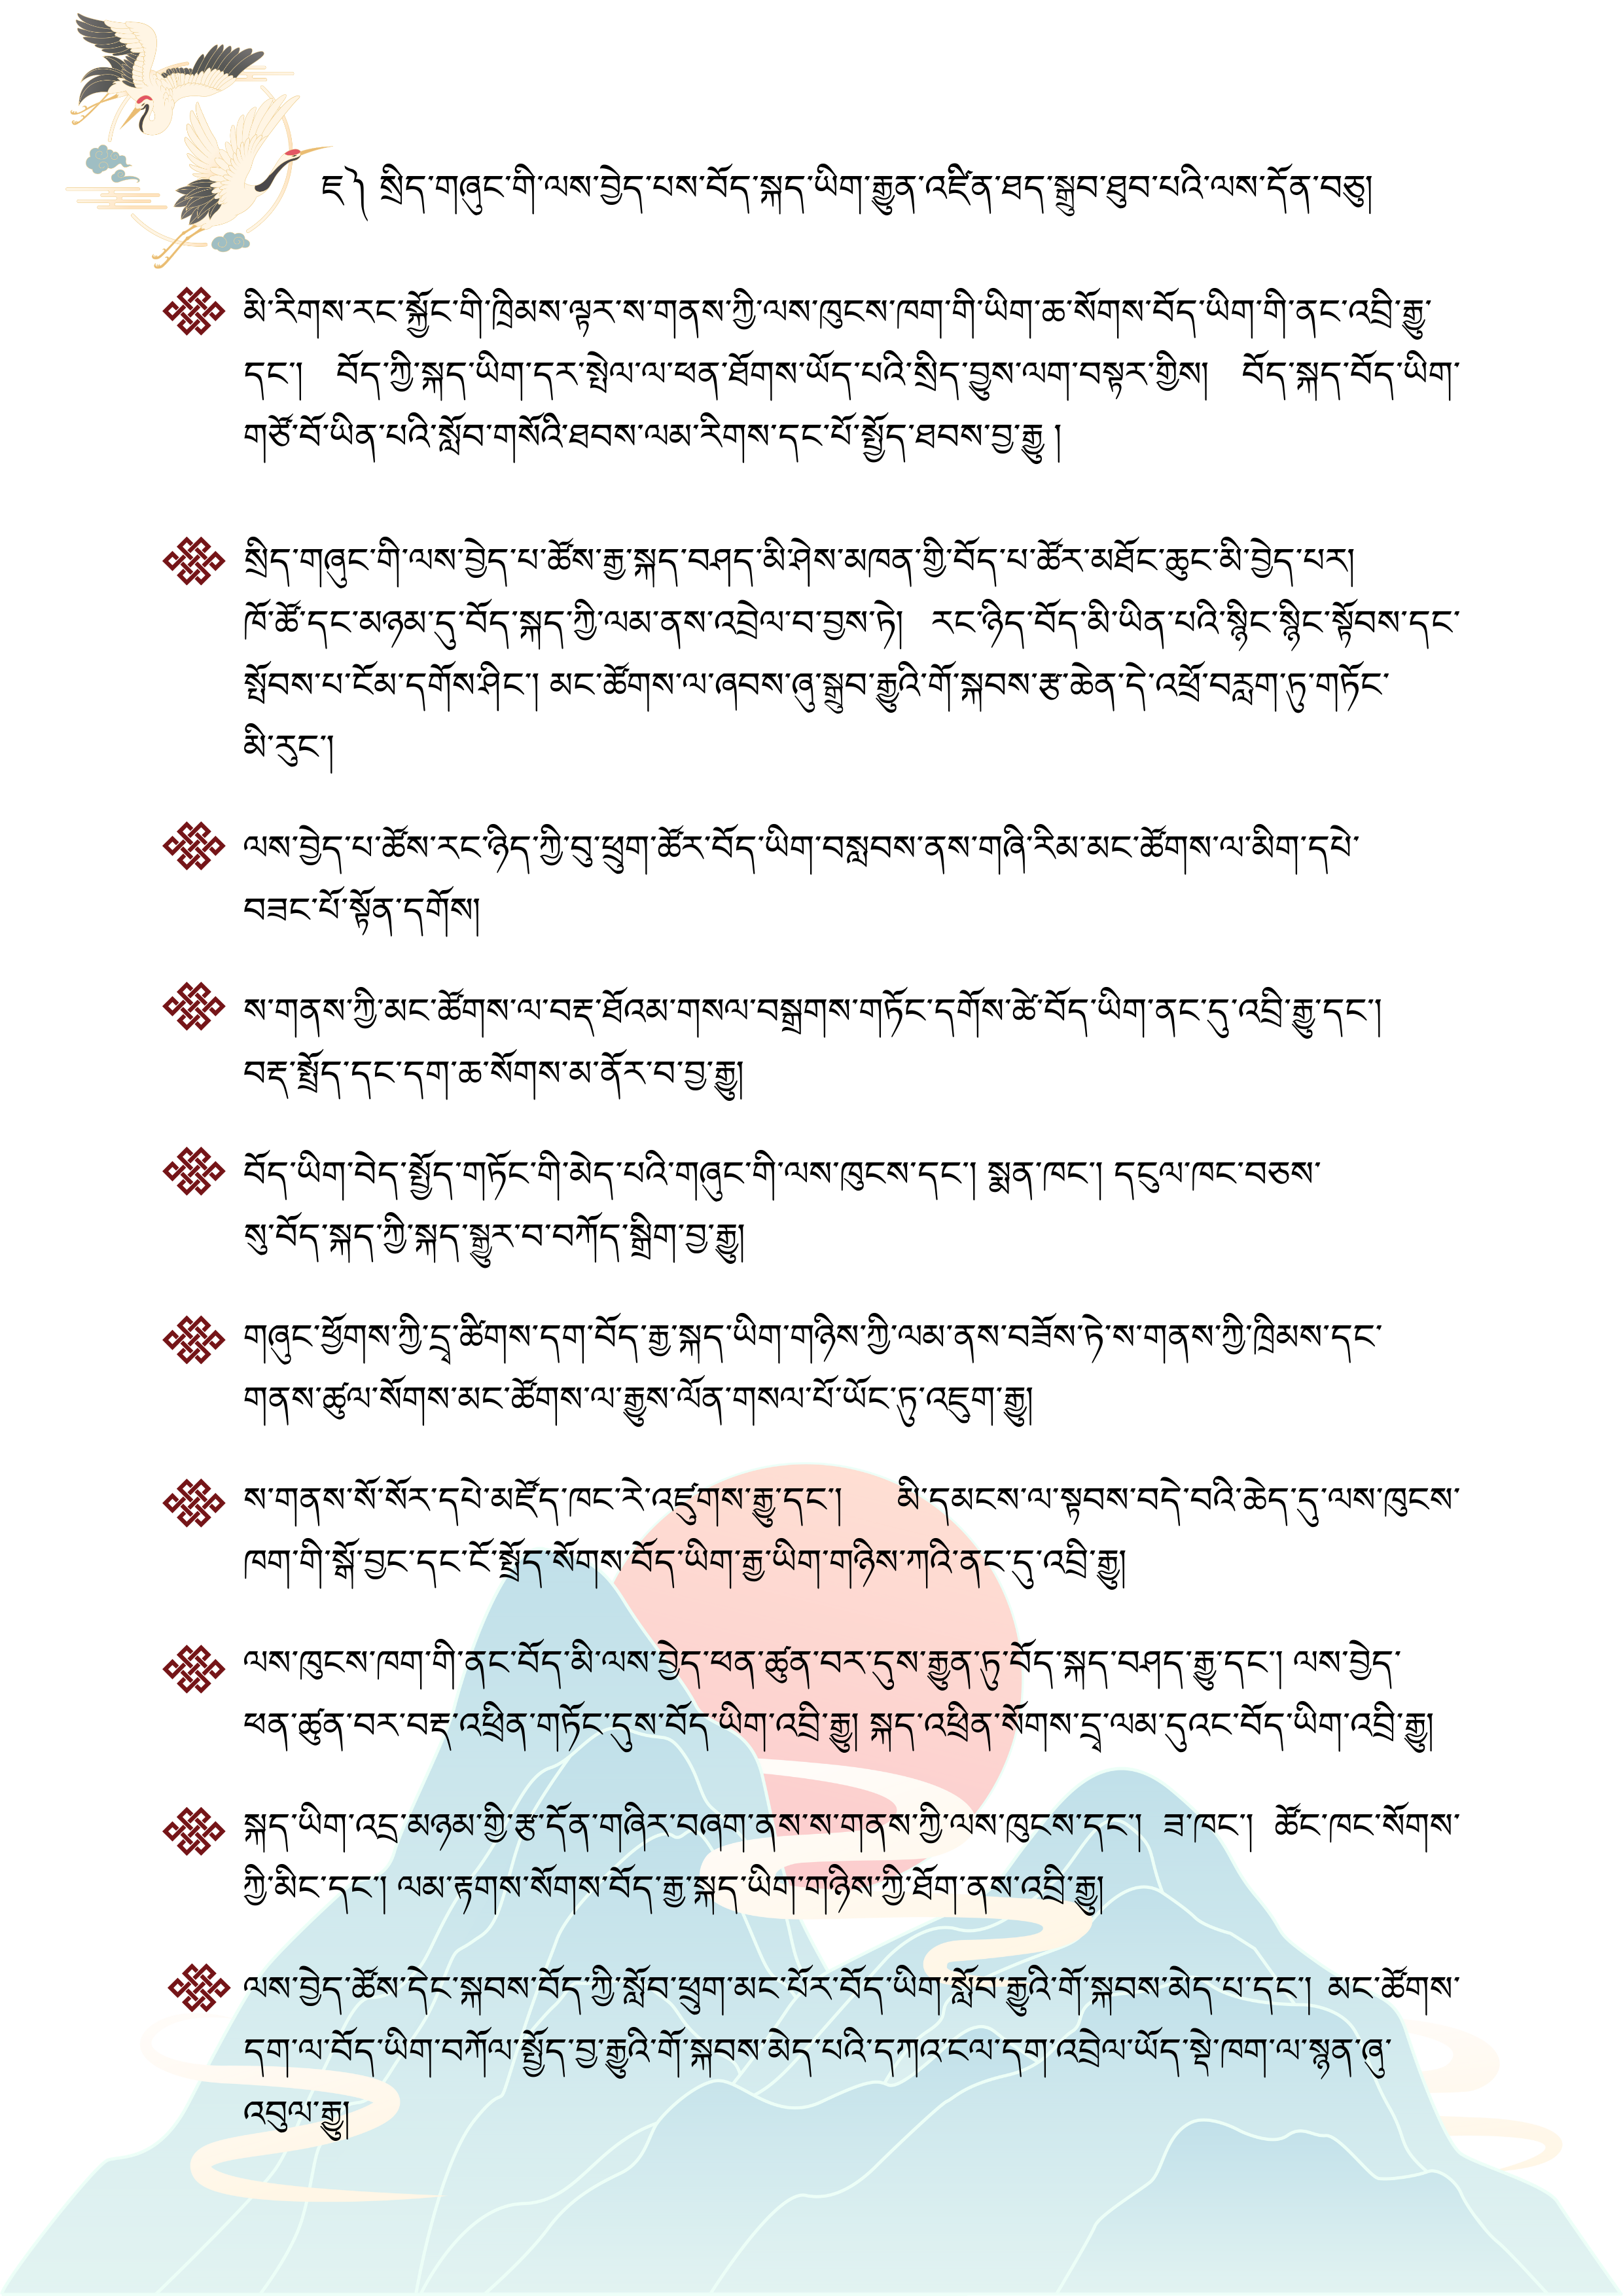 ཇ༽ སྲིད་གཞུང་གི་ལས་བྱེད་པས་བོད་སྐད་ཡིག་རྒྱུན་འཛིན་ཐད་སྒྲུབ་ཐུབ་པའི་ལས་དོན་བཅུ།
མི་རིགས་རང་སྐྱོང་གི་ཁྲིམས་ལྟར་ས་གནས་ཀྱི་ལས་ཁུངས་ཁག་གི་ཡིག་ཆ་སོགས་བོད་ཡིག་གི་ནང་འབྲི་རྒྱུ་
དང་། བོད་ཀྱི་སྐད་ཡིག་དར་སྤེལ་ལ་ཕན་ཐོགས་ཡོད་པའི་སྲིད་བྱུས་ལག་བསྟར་གྱིས། བོད་སྐད་བོད་ཡིག་
གཙོ་བོ་ཡིན་པའི་སློབ་གསོའི་ཐབས་ལམ་རིགས་དང་པོ་སྤྱོད་ཐབས་བྱ་རྒྱུ །
སྲིད་གཞུང་གི་ལས་བྱེད་པ་ཚོས་རྒྱ་སྐད་བཤད་མི་ཤེས་མཁན་གྱི་བོད་པ་ཚོར་མཐོང་ཆུང་མི་བྱེད་པར།
ཁོ་ཚོ་དང་མཉམ་དུ་བོད་སྐད་ཀྱི་ལམ་ནས་འབྲེལ་བ་བྱས་ཏེ། རང་ཉིད་བོད་མི་ཡིན་པའི་སྙིང་སྙིང་སྟོབས་དང་
སྤོབས་པ་ངོམ་དགོས་ཤིང་། མང་ཚོགས་ལ་ཞབས་ཞུ་སྒྲུབ་རྒྱུའི་གོ་སྐབས་རྩ་ཆེན་དེ་འཕྲོ་བརླག་ཏུ་གཏོང་
མི་རུང་།
ལས་བྱེད་པ་ཚོས་རང་ཉིད་ཀྱི་བུ་ཕྲུག་ཚོར་བོད་ཡིག་བསླབས་ནས་གཞི་རིམ་མང་ཚོགས་ལ་མིག་དཔེ་
བཟང་པོ་སྟོན་དགོས།
ས་གནས་ཀྱི་མང་ཚོགས་ལ་བརྡ་ཐོའམ་གསལ་བསྒྲགས་གཏོང་དགོས་ཚེ་བོད་ཡིག་ནང་དུ་འབྲི་རྒྱུ་དང་།
བརྡ་སྤྲོད་དང་དག་ཆ་སོགས་མ་ནོར་བ་བྱ་རྒྱུ།
བོད་ཡིག་བེད་སྤྱོད་གཏོང་གི་མེད་པའི་གཞུང་གི་ལས་ཁུངས་དང་། སྨན་ཁང་། དངུལ་ཁང་བཅས་
སུ་བོད་སྐད་ཀྱི་སྐད་སྒྱུར་བ་བཀོད་སྒྲིག་བྱ་རྒྱུ།
གཞུང་ཕྱོགས་ཀྱི་དྲྭ་ཚིགས་དག་བོད་རྒྱ་སྐད་ཡིག་གཉིས་ཀྱི་ལམ་ནས་བཟོས་ཏེ་ས་གནས་ཀྱི་ཁྲིམས་དང་
གནས་ཚུལ་སོགས་མང་ཚོགས་ལ་རྒྱུས་ལོན་གསལ་པོ་ཡོང་ཏུ་འཇུག་རྒྱུ།
ས་གནས་སོ་སོར་དཔེ་མཛོད་ཁང་རེ་འཛུགས་རྒྱུ་དང་། མི་དམངས་ལ་སྟབས་བདེ་བའི་ཆེད་དུ་ལས་ཁུངས་
ཁག་གི་སྒོ་བྱང་དང་ངོ་སྤྲོད་སོགས་བོད་ཡིག་རྒྱ་ཡིག་གཉིས་ཀའི་ནང་དུ་འབྲི་རྒྱུ།
ལས་ཁུངས་ཁག་གི་ནང་བོད་མི་ལས་བྱེད་ཕན་ཚུན་བར་དུས་རྒྱུན་ཏུ་བོད་སྐད་བཤད་རྒྱུ་དང་། ལས་བྱེད་
ཕན་ཚུན་བར་བརྡ་འཕྲིན་གཏོང་དུས་བོད་ཡིག་འབྲི་རྒྱུ། སྐད་འཕྲིན་སོགས་དྲྭ་ལམ་དུའང་བོད་ཡིག་འབྲི་རྒྱུ།
སྐད་ཡིག་འདྲ་མཉམ་གྱི་རྩ་དོན་གཞིར་བཞག་ནས་ས་གནས་ཀྱི་ལས་ཁུངས་དང་། ཟ་ཁང་། ཚོང་ཁང་སོགས་
ཀྱི་མིང་དང་། ལམ་རྟགས་སོགས་བོད་རྒྱ་སྐད་ཡིག་གཉིས་ཀྱི་ཐོག་ནས་འབྲི་རྒྱུ།
ལས་བྱེད་ཚོས་དེང་སྐབས་བོད་ཀྱི་སློབ་ཕྲུག་མང་པོར་བོད་ཡིག་སློབ་རྒྱུའི་གོ་སྐབས་མེད་པ་དང་། མང་ཚོགས་
དག་ལ་བོད་ཡིག་བཀོལ་སྤྱོད་བྱ་རྒྱུའི་གོ་སྐབས་མེད་པའི་དཀའ་ངལ་དག་འབྲེལ་ཡོད་སྡེ་ཁག་ལ་སྙན་ཞུ་
འབུལ་རྒྱུ།